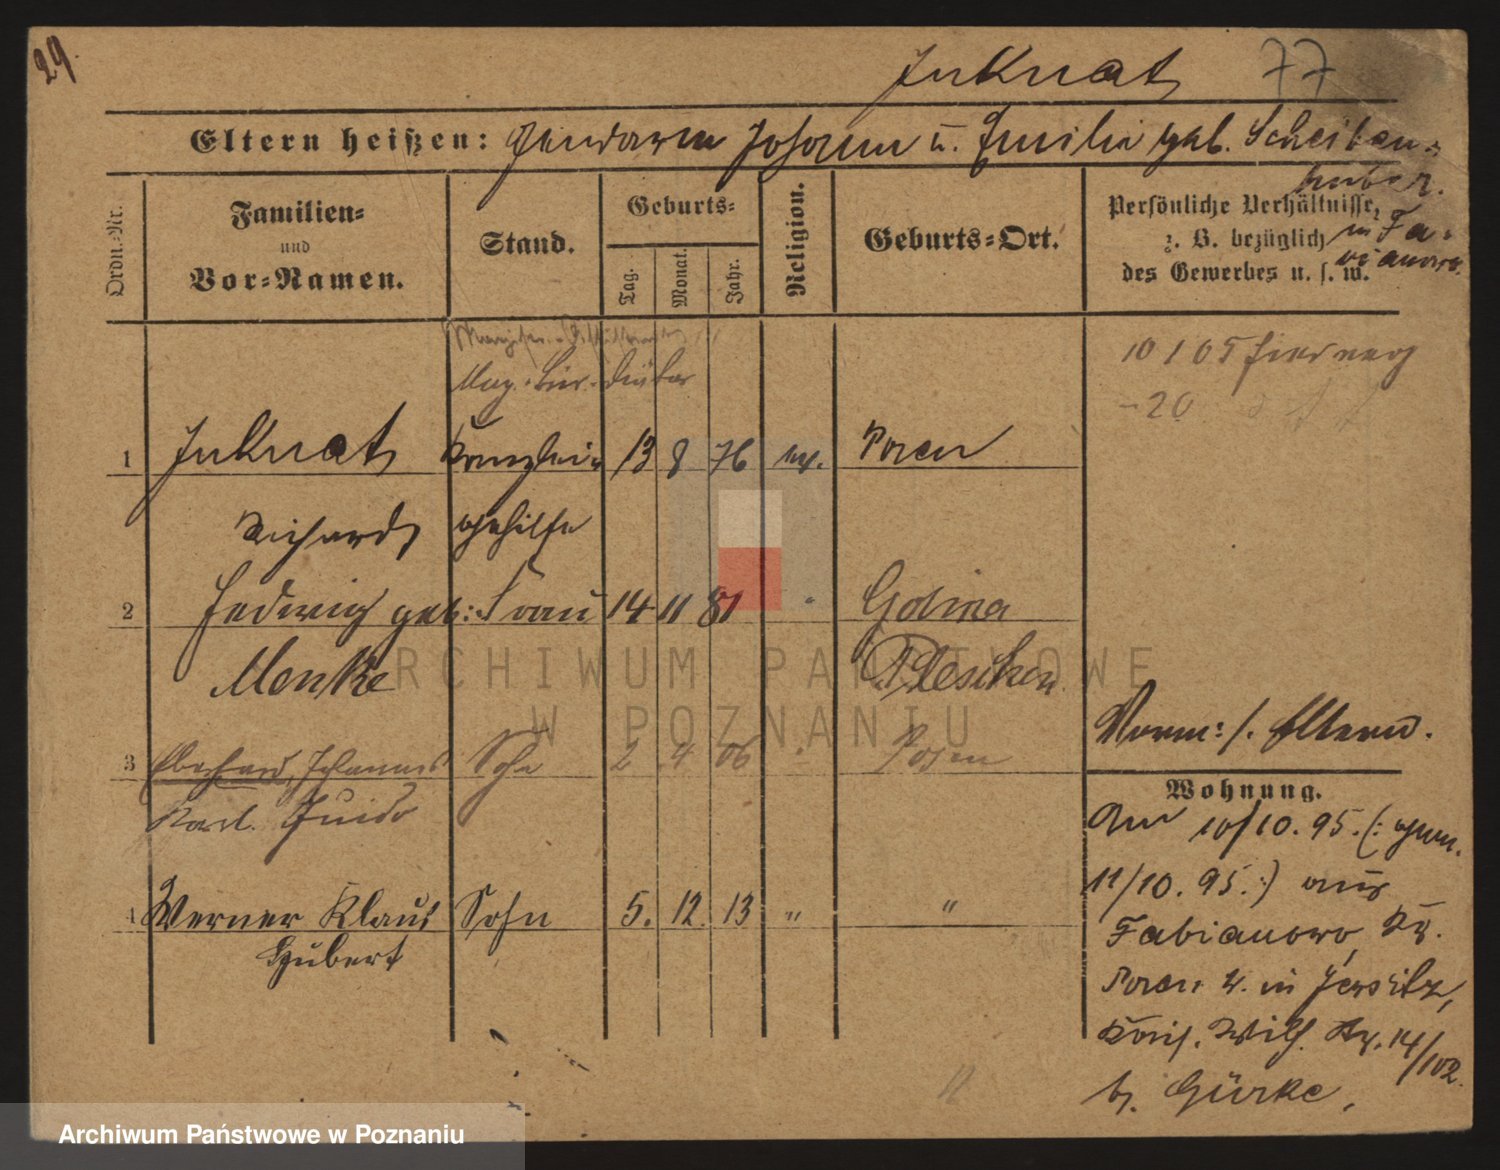 29.
Juknat 77
Eltern heißen: Gendarm Johann u. Emilie geb. Scheiben=
huber.
in Fa=
bianowo.
Ordn.=Nr.
Familien=
und
Vor=Namen.
Stand.
Geburts=
Tag.
Monat.
Jahr.
Religion.
Geburts=Ort.
Persönliche Verhältnisse,
z. B. bezüglich
des Gewerbes u. s. w.
10 1 05
- 20
Mag. Bür. Diätar
1 Juknat Kanzlei= 13 8 76 ev. Posen
Richard gehilfe
2 Hedwig geb: Frau 14 11 81 " Golina
Menke Pleschen
3 Eberhard, Johannes Sohn 2 4 06 " Posen
Karl. Guido
4 Werner Klaus Sohn 5. 12. 13 " "
Hubert
Norm: s. Eltern.
Wohnung.
Am 10/10. 95. (: gem.
11/10. 95. :) aus
Fabianowo, Kr.
Posen W. in Jersitz,
König. Wilh. Str. 14/102
b. Gürke,
ARCHIWUM PAŃSTWOWE
W POZNANIU
Archiwum Państwowe w Poznaniu